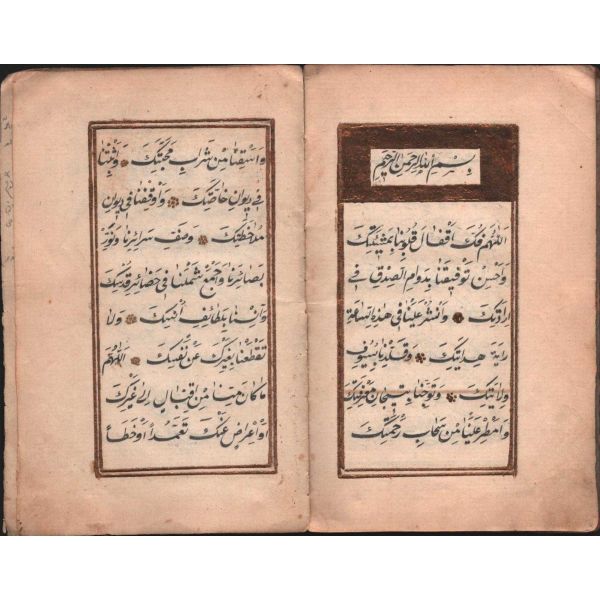 بسم الله الرحمن الرحيم
اللهم فك اقفال قلوبنا بمشيئتك
واحسن توفيقنا بدوام الصدق في
ارادتك وانشر علينا في هذه الساعة
راية هدايتك وقلدنا بسيوف
ولايتك وتوجنا بتيجان معرفتك
وامطر علينا من سحاب رحمتك
واسقنا من شراب محبتك واثبتنا
في ديوان خاصتك واوقفنا في ديوان
ملاحظتك وصف سرائرنا ونور
بصائرنا واجمع شملنا في حضائر قدسك
وآنسنا بلطائف أنسك ولا
تقطعنا بغيرك عن نفسك اللهم
ما كان منا من اقبال إلى غيرك
أو اعراض عنك تعمداً أو خطأ